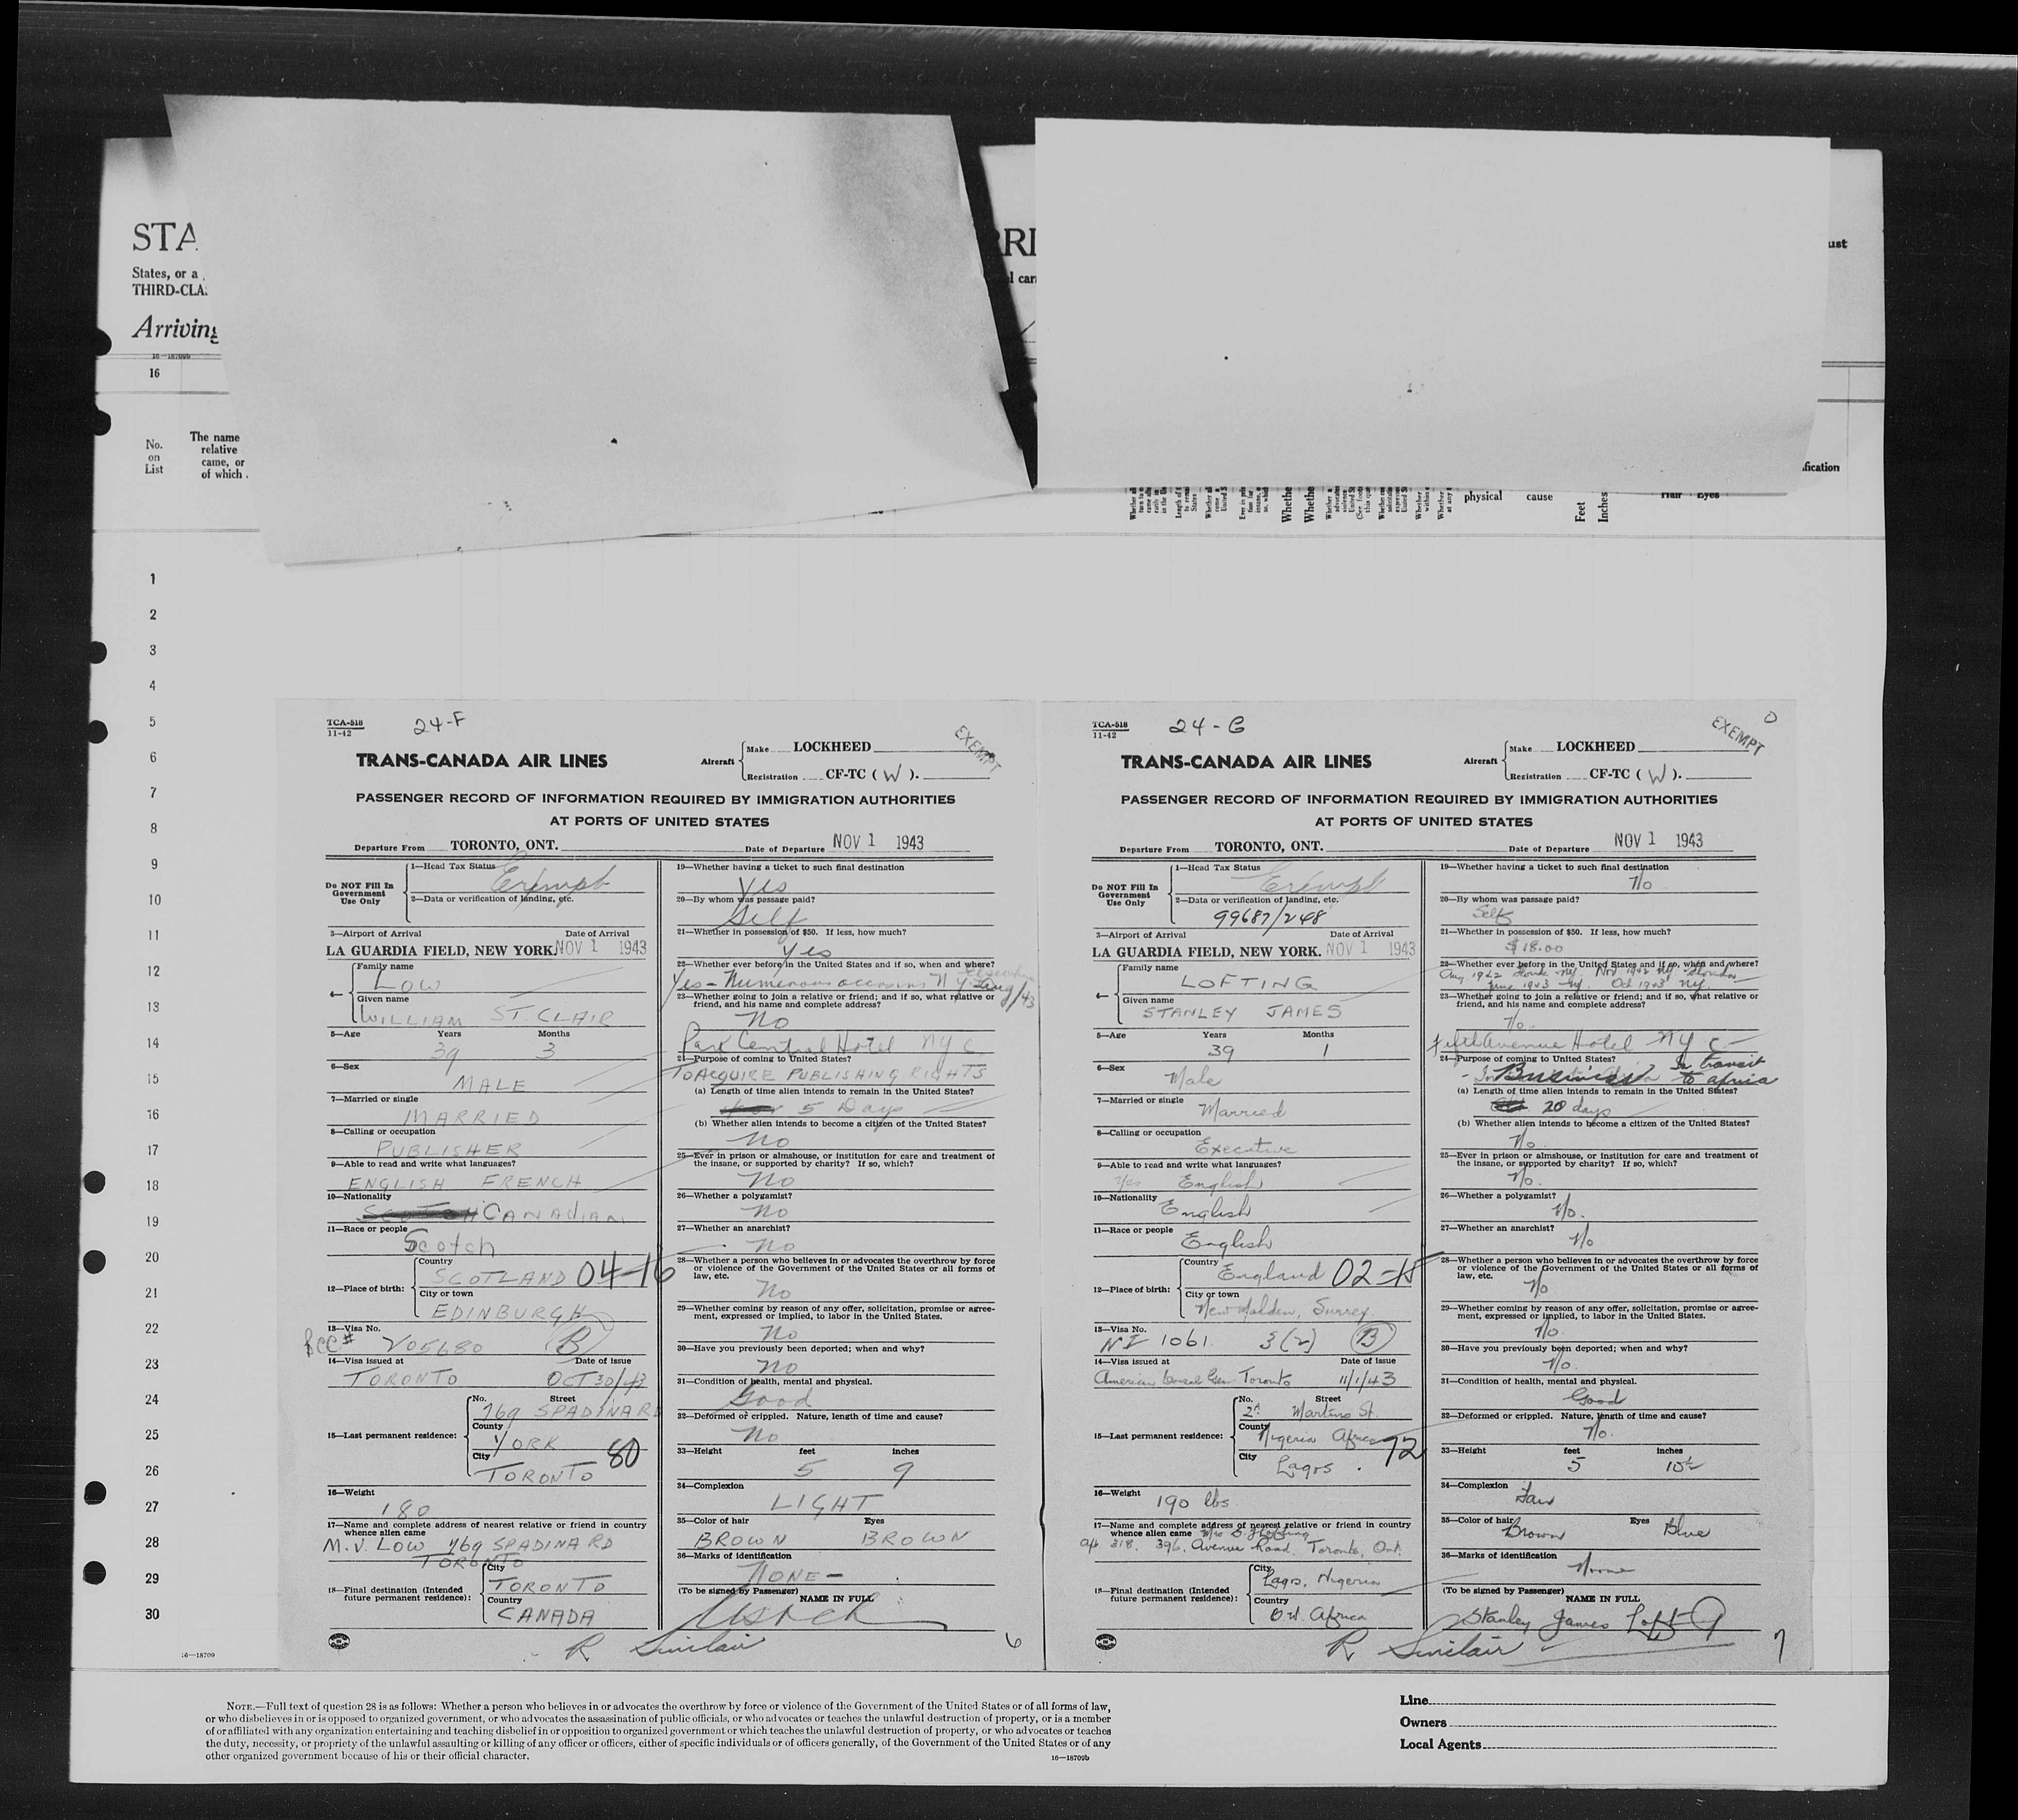 STA
States, or a
THIRD-CLA
Arriving
16—18709b
16
No.
on
List
The name
relative
came, or
of which
RRI
l car
ust
fication
physical cause
Feet
Inches
Hair Eyes
1
2
3
4
5
6
7
8
9
10
11
12
13
14
15
16
17
18
19
20
21
22
23
24
25
26
27
28
29
30
16—18709
TCA-518
11-42
24-F
EXEMPT
TRANS-CANADA AIR LINES
Aircraft
Make LOCKHEED
Registration CF-TC ( W ).
PASSENGER RECORD OF INFORMATION REQUIRED BY IMMIGRATION AUTHORITIES
AT PORTS OF UNITED STATES
Departure From TORONTO, ONT. Date of Departure NOV 1 1943
Do NOT Fill In
Government
Use Only
1—Head Tax Status Exempt
2—Data or verification of landing, etc.
3—Airport of Arrival Date of Arrival
LA GUARDIA FIELD, NEW YORK. NOV 1 1943
4—
Family name
LOW
Given name
WILLIAM ST. CLAIR
5—Age Years Months
39 3
6—Sex
MALE
7—Married or single
MARRIED
8—Calling or occupation
PUBLISHER
9—Able to read and write what languages?
ENGLISH FRENCH
10—Nationality
CANADIAN
11—Race or people
Scotch
12—Place of birth:
Country
SCOTLAND 04-16
City or town
EDINBURGH
13—Visa No.
BCC# V05680 B
14—Visa issued at Date of issue
TORONTO OCT 30/43
15—Last permanent residence:
No. Street
769 SPADINA RD
County
YORK 80
City
TORONTO
16—Weight
180
17—Name and complete address of nearest relative or friend in country
whence alien came
M.V. LOW 769 SPADINA RD
TORONTO
18—Final destination (Intended
future permanent residence):
City
TORONTO
Country
CANADA
19—Whether having a ticket to such final destination
Yes
20—By whom was passage paid?
Self
21—Whether in possession of $50. If less, how much?
Yes
22—Whether ever before in the United States and if so, when and where?
Yes - Numerous occasions N.Y. Aug/43
23—Whether going to join a relative or friend; and if so, what relative or
friend, and his name and complete address?
No
Park Central Hotel NYC
24—Purpose of coming to United States?
TO ACQUIRE PUBLISHING RIGHTS
(a) Length of time alien intends to remain in the United States?
5 Days
(b) Whether alien intends to become a citizen of the United States?
No
25—Ever in prison or almshouse, or institution for care and treatment of
the insane, or supported by charity? If so, which?
No
26—Whether a polygamist?
No
27—Whether an anarchist?
No
28—Whether a person who believes in or advocates the overthrow by force
or violence of the Government of the United States or all forms of
law, etc.
No
29—Whether coming by reason of any offer, solicitation, promise or agree-
ment, expressed or implied, to labor in the United States.
No
30—Have you previously been deported; when and why?
No
31—Condition of health, mental and physical.
Good
32—Deformed or crippled. Nature, length of time and cause?
No
33—Height feet inches
5 9
34—Complexion
LIGHT
35—Color of hair Eyes
BROWN BROWN
36—Marks of identification
NONE -
(To be signed by Passenger)
NAME IN FULL
R Sinclair
6
TCA-518
11-42
24-G
EXEMPT
TRANS-CANADA AIR LINES
Aircraft
Make LOCKHEED
Registration CF-TC ( W ).
PASSENGER RECORD OF INFORMATION REQUIRED BY IMMIGRATION AUTHORITIES
AT PORTS OF UNITED STATES
Departure From TORONTO, ONT. Date of Departure NOV 1 1943
Do NOT Fill In
Government
Use Only
1—Head Tax Status Exempt
2—Data or verification of landing, etc.
99687/248
3—Airport of Arrival Date of Arrival
LA GUARDIA FIELD, NEW YORK. NOV 1 1943
4—
Family name
LOFTING
Given name
STANLEY JAMES
5—Age Years Months
39 1
6—Sex
Male
7—Married or single
Married
8—Calling or occupation
Executive
9—Able to read and write what languages?
Yes English
10—Nationality
English
11—Race or people
English
12—Place of birth:
Country
England 02-15
City or town
New Malden, Surrey.
13—Visa No.
NI 1061. 3(2) B
14—Visa issued at Date of issue
American Consul Gen. Toronto 11/1/43
15—Last permanent residence:
No. Street
2A Martins St.
County
Nigeria Africa 72
City
Lagos.
16—Weight
190 lbs
17—Name and complete address of nearest relative or friend in country
whence alien came Mrs S. Lofting
Ap. 318. 396, Avenue Road, Toronto, Ont.
18—Final destination (Intended
future permanent residence):
City
Lagos, Nigeria
Country
B.W. Africa
19—Whether having a ticket to such final destination
No
20—By whom was passage paid?
Self
21—Whether in possession of $50. If less, how much?
$18.00
22—Whether ever before in the United States and if so, when and where?
Aug 1942 NY. Nov 1942 NY
June 1943 NY. Oct 1943 NY.
23—Whether going to join a relative or friend; and if so, what relative or
friend, and his name and complete address?
No.
Fifth Avenue Hotel NYC -
24—Purpose of coming to United States?
Business In transit
to Africa
(a) Length of time alien intends to remain in the United States?
20 days
(b) Whether alien intends to become a citizen of the United States?
No.
25—Ever in prison or almshouse, or institution for care and treatment of
the insane, or supported by charity? If so, which?
No.
26—Whether a polygamist?
No.
27—Whether an anarchist?
No
28—Whether a person who believes in or advocates the overthrow by force
or violence of the Government of the United States or all forms of
law, etc.
No
29—Whether coming by reason of any offer, solicitation, promise or agree-
ment, expressed or implied, to labor in the United States.
No.
30—Have you previously been deported; when and why?
No.
31—Condition of health, mental and physical.
Good
32—Deformed or crippled. Nature, length of time and cause?
No.
33—Height feet inches
5 10½
34—Complexion
Fair
35—Color of hair Eyes
Brown Blue
36—Marks of identification
None
(To be signed by Passenger)
NAME IN FULL
Stanley James Lofting
R Sinclair
7
NOTE.—Full text of question 28 is as follows: Whether a person who believes in or advocates the overthrow by force or violence of the Government of the United States or of all forms of law,
or who disbelieves in or is opposed to organized government, or who advocates the assassination of public officials, or who advocates or teaches the unlawful destruction of property, or is a member
of or affiliated with any organization entertaining and teaching disbelief in or opposition to organized government or which teaches the unlawful destruction of property, or who advocates or teaches
the duty, necessity, or propriety of the unlawful assaulting or killing of any officer or officers, either of specific individuals or of officers generally, of the Government of the United States or of any
other organized government because of his or their official character.
16—18709b
Line
Owners
Local Agents